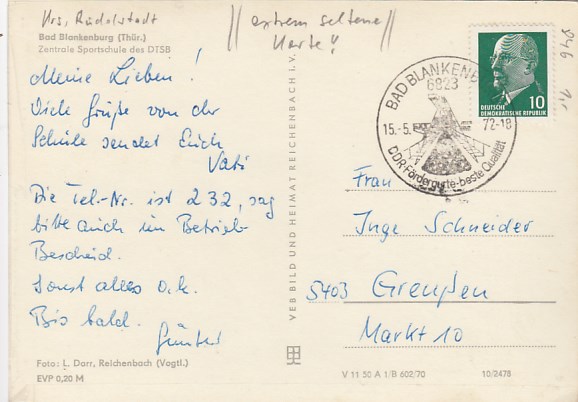 Krs. Rudolstadt
// extrem seltene //
Karte!!
Bad Blankenburg (Thür.)
Zentrale Sportschule des DTSB
Meine Lieben!
Viele Grüße von der
Schule sendet Euch
Vati
Die Tel.-Nr. ist 232, sag
bitte auch im Betrieb
Bescheid.
Sonst alles o.k.
Bis bald.
Günter
Foto: L. Dorr, Reichenbach (Vogtl.)
EVP 0,20 M
VEB BILD UND HEIMAT REICHENBACH i.V.
BAD BLANKENBURG
6823
15.-5.
72-18
DDR-Fördergurte-beste Qualität
DEUTSCHE
DEMOKRATISCHE REPUBLIK
10
Frau
Inge Schneider
5403 Greußen
Markt 10
V 11 50 A 1/B 602/70
10/2478